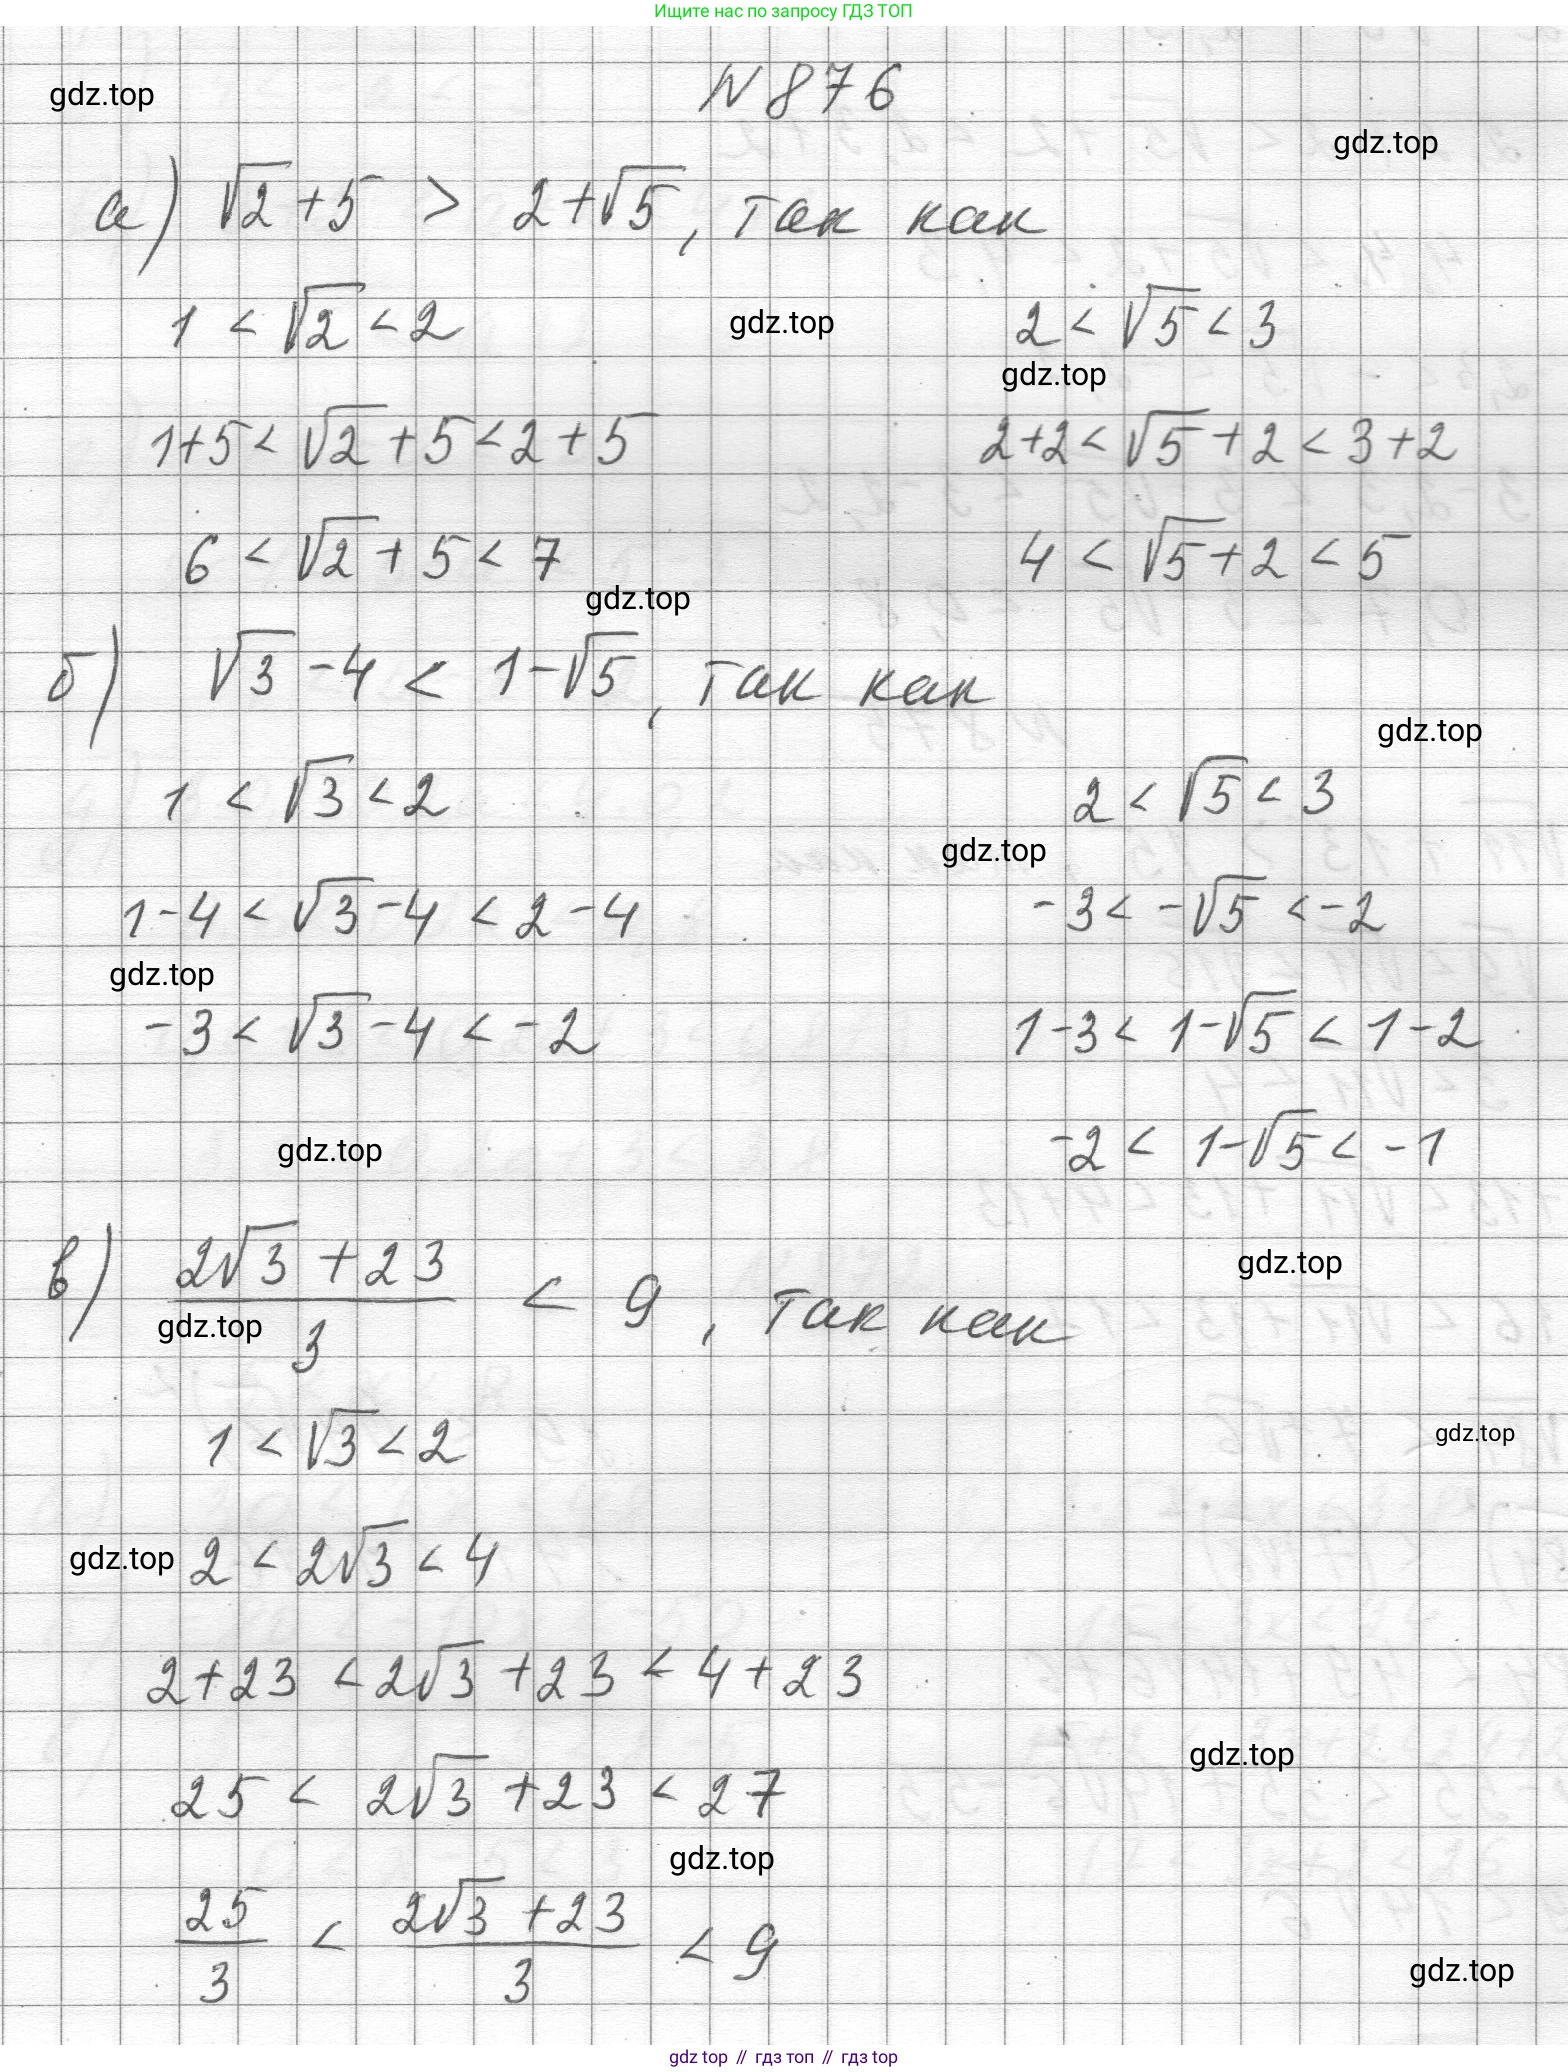 Ищите нас по запросу ГДЗ ТОП
N 876
gdz.top
gdz.top
а) √2 + 5 > 2 + √5, так как
1 < √2 < 2 gdz.top 2 < √5 < 3
gdz.top
1+5 < √2 + 5 < 2 + 5 2+2 < √5 + 2 < 3 + 2
6 < √2 + 5 < 7 4 < √5 + 2 < 5
gdz.top
б) √3 - 4 < 1 - √5, так как
gdz.top
1 < √3 < 2 2 < √5 < 3
gdz.top
1 - 4 < √3 - 4 < 2 - 4 -3 < -√5 < -2
gdz.top
-3 < √3 - 4 < -2 1 - 3 < 1 - √5 < 1 - 2
gdz.top -2 < 1 - √5 < -1
в) (2√3 + 23)/3 < 9, так как
gdz.top
gdz.top
1 < √3 < 2
gdz.top
gdz.top 2 < 2√3 < 4
2 + 23 < 2√3 + 23 < 4 + 23
gdz.top
25 < 2√3 + 23 < 27
gdz.top
25/3 < (2√3 + 23)/3 < 9
gdz.top
gdz top // гдз топ // гдз top